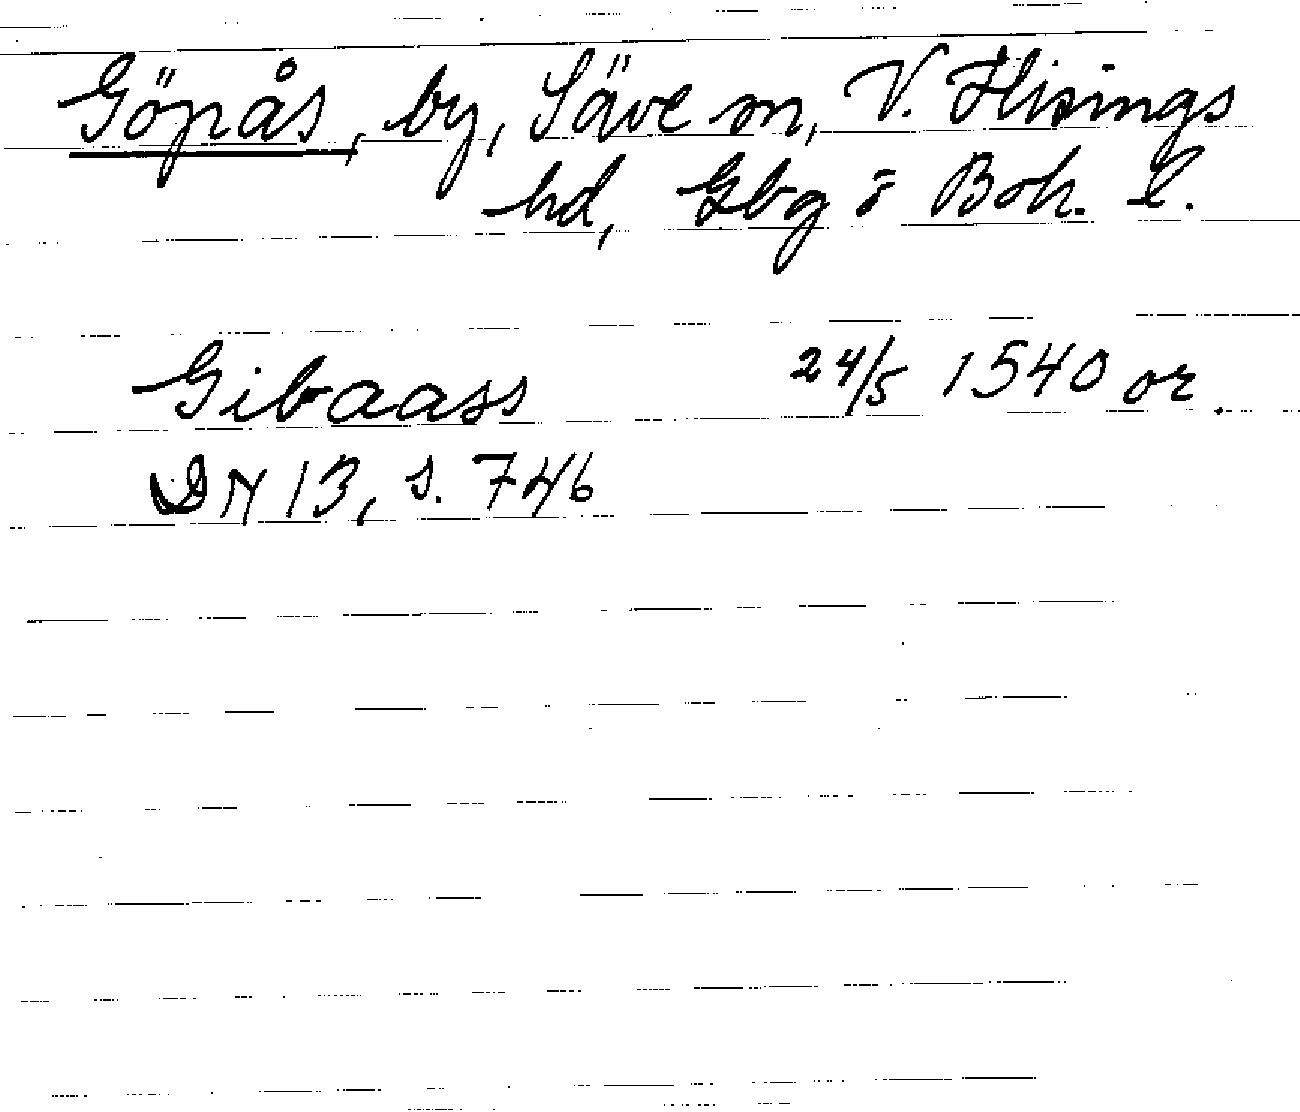 Göpås, by, Säve sn, V. Hisings
hd, Gbg o Boh. l.
Gibaass 24/5 1540 or.
DN 13, s. 746